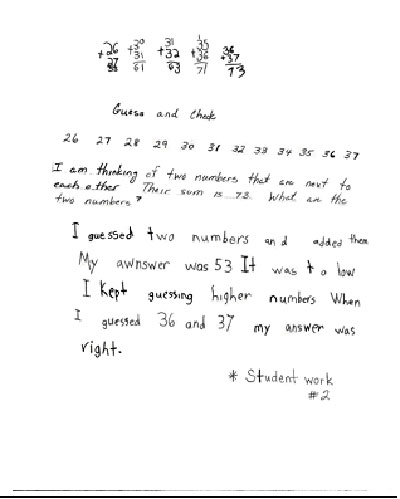 1
+26 +30 +31 +35 36
27 31 32 36 +37
61 63 71 73
Guess and Check
26 27 28 29 30 31 32 33 34 35 36 37
I am thinking of two numbers that are next to
each other Their sum is 73. What are the
two numbers?
I guessed two numbers and added them
My awnswer was 53 It was to low
I kept guessing higher numbers When
I guessed 36 and 37 my answer was
right.
* Student work
#2